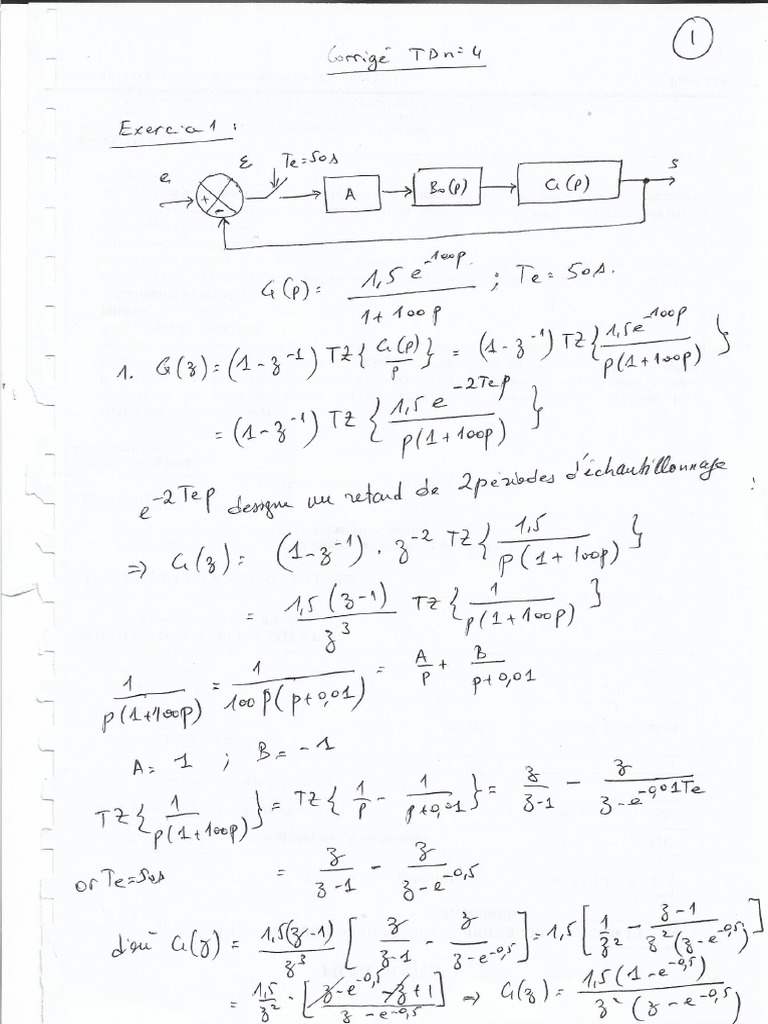 1
Corrigé TD n=4
Exercia 1 :
e + - ε Te=50s A B₀(p) G(p) s
G(p) = 1,5 e^-100p / (1+100p) ; Te = 50s.
1. G(z) = (1-z^-1) TZ{ G(p)/p } = (1-z^-1) TZ{ 1,5e^-100p / p(1+100p) }
= (1-z^-1) TZ { 1,5 e^-2Tep / p(1+100p) }
e^-2Tep designe un retard de 2 périodes d'échantillonnage :
⇒ G(z) = (1-z^-1) . z^-2 TZ{ 1,5 / p(1+100p) }
= 1,5(z-1) / z^3 TZ{ 1 / p(1+100p) }
1 / p(1+100p) = 1 / 100p(p+0,01) = A/p + B/(p+0,01)
A = 1 ; B = -1
TZ{ 1 / p(1+100p) } = TZ{ 1/p - 1/(p+0,01) } = z/(z-1) - z/(z-e^-0,01Te)
or Te=50s = z/(z-1) - z/(z-e^-0,5)
d'où G(z) = 1,5(z-1)/z^3 [ z/(z-1) - z/(z-e^-0,5) ] = 1,5 [ 1/z^2 - (z-1)/z^2(z-e^-0,5) ]
= 1,5/z^2 . [ (z-e^-0,5 -z+1) / (z-e^-0,5) ] ⇒ G(z) = 1,5(1-e^-0,5) / z^2 (z-e^-0,5)